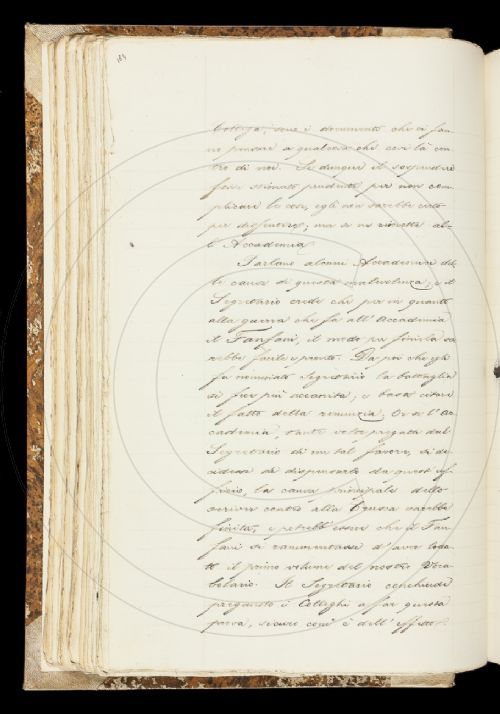 184
Collega, sono i documenti che ci fan-
no pensare a qualcosa che covi là con-
tro di noi. Se dunque il soprassedere
fosse stimato prudente per non com-
plicare le cose, egli non sarebbe certo
per dissentire; ma se ne rimette al-
l' Accademia.
Parlano alcuni Accademici del-
le cause di questa malevolenza; e il
Segretario crede che per in quanto
alla guerra che fa all' Accademia
il Fanfani, il modo per finirla sa-
rebbe facile e pronto. Da poi che egli
fu nominato Segretario la battaglia
si fece più accanita; e basta citare
il fatto della rinunzia. Ora se l' Ac-
cademia, tante volte pregata dal
Segretario di un tal favore, si de-
cidesse di dispensarlo da quest' uf-
ficio, la causa principale dello
scrivere contro alla Crusca sarebbe
finita, e potrebb' essere che il Fan-
fani si rammentasse d' aver loda-
to il primo volume del nostro Voca-
bolario. Il Segretario conchiude
pregando i Colleghi a far questa
prova, sicuro com' è dell' effetto.